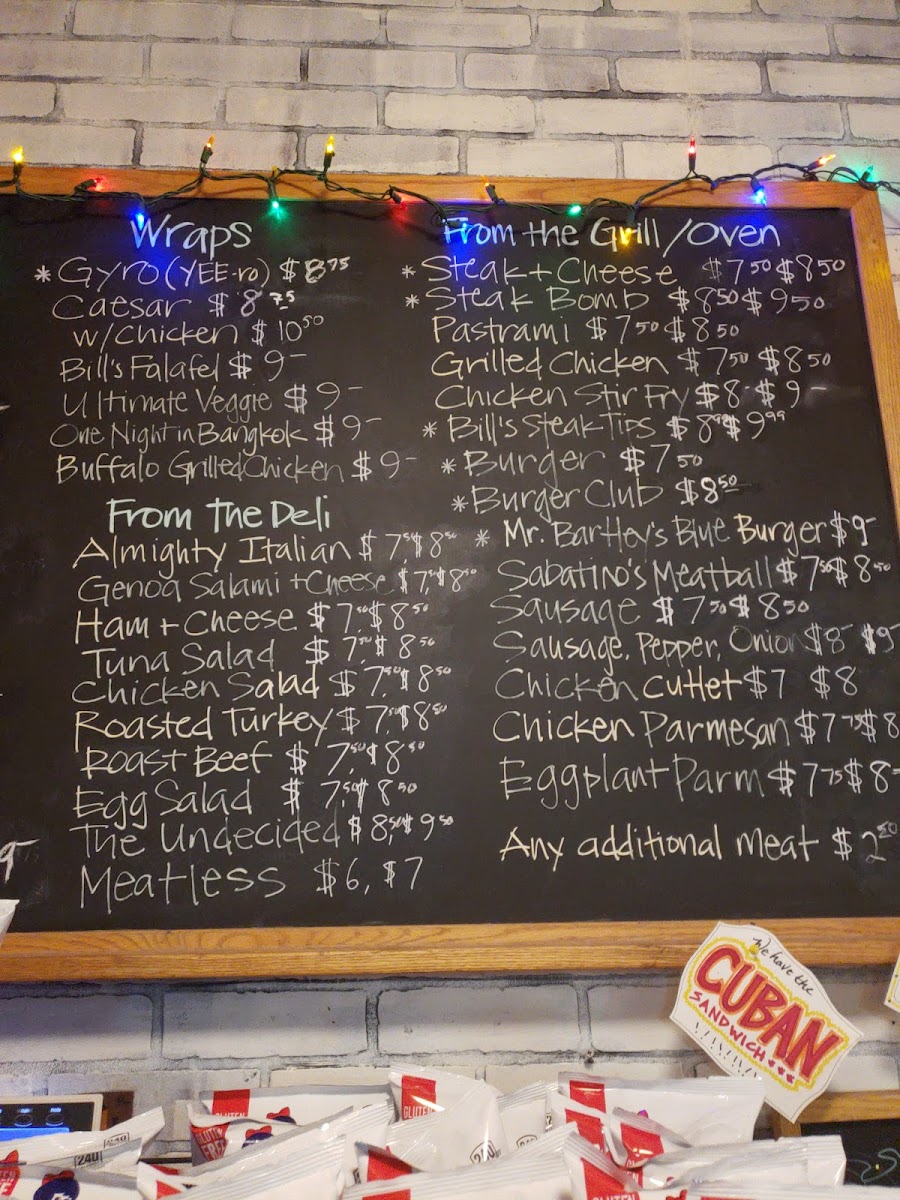 Wraps
* Gyro (YEE-ro) $8.75
Caesar $8.75
w/Chicken $10.50
Bill's Falafel $9-
Ultimate Veggie $9-
One Night in Bangkok $9-
Buffalo Grilled Chicken $9-
From The Deli
Almighty Italian $7.50 $8.50
Genoa Salami + Cheese $7.50 $8.50
Ham + Cheese $7.50 $8.50
Tuna Salad $7.50 $8.50
Chicken Salad $7.50 $8.50
Roasted Turkey $7.50 $8.50
Roast Beef $7.50 $8.50
Egg Salad $7.50 $8.50
The Undecided $8.50 $9.50
Meatless $6, $7
9-
From the Grill/Oven
* Steak + Cheese $7.50 $8.50
* Steak Bomb $8.50 $9.50
Pastrami $7.50 $8.50
Grilled Chicken $7.50 $8.50
Chicken Stir Fry $8- $9-
* Bill's Steak Tips $8.99 $9.99
* Burger $7.50
* Burger Club $8.50
* Mr. Bartley's Blue Burger $9-
Sabatino's Meatball $7.50 $8.50
Sausage $7.50 $8.50
Sausage, Pepper, Onion $8- $9-
Chicken Cutlet $7 $8
Chicken Parmesan $7.75 $8
Eggplant Parm $7.75 $8-
Any additional meat $2.50
We have the
CUBAN
SANDWICH
GLUTEN
GLUTEN
FREE
240
240
GLUTEN